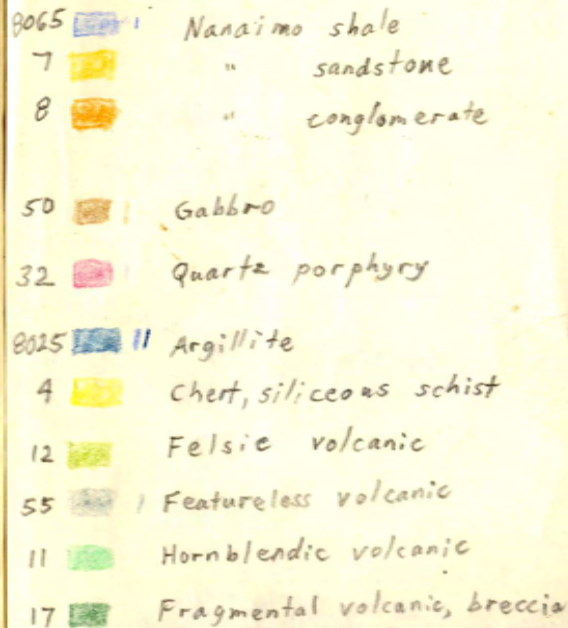 8065 Nanaimo shale
7 " sandstone
8 " conglomerate
50 Gabbro
32 Quartz porphyry
8025 Argillite
4 Chert, siliceous schist
12 Felsic volcanic
55 Featureless volcanic
11 Hornblendic volcanic
17 Fragmental volcanic, breccia